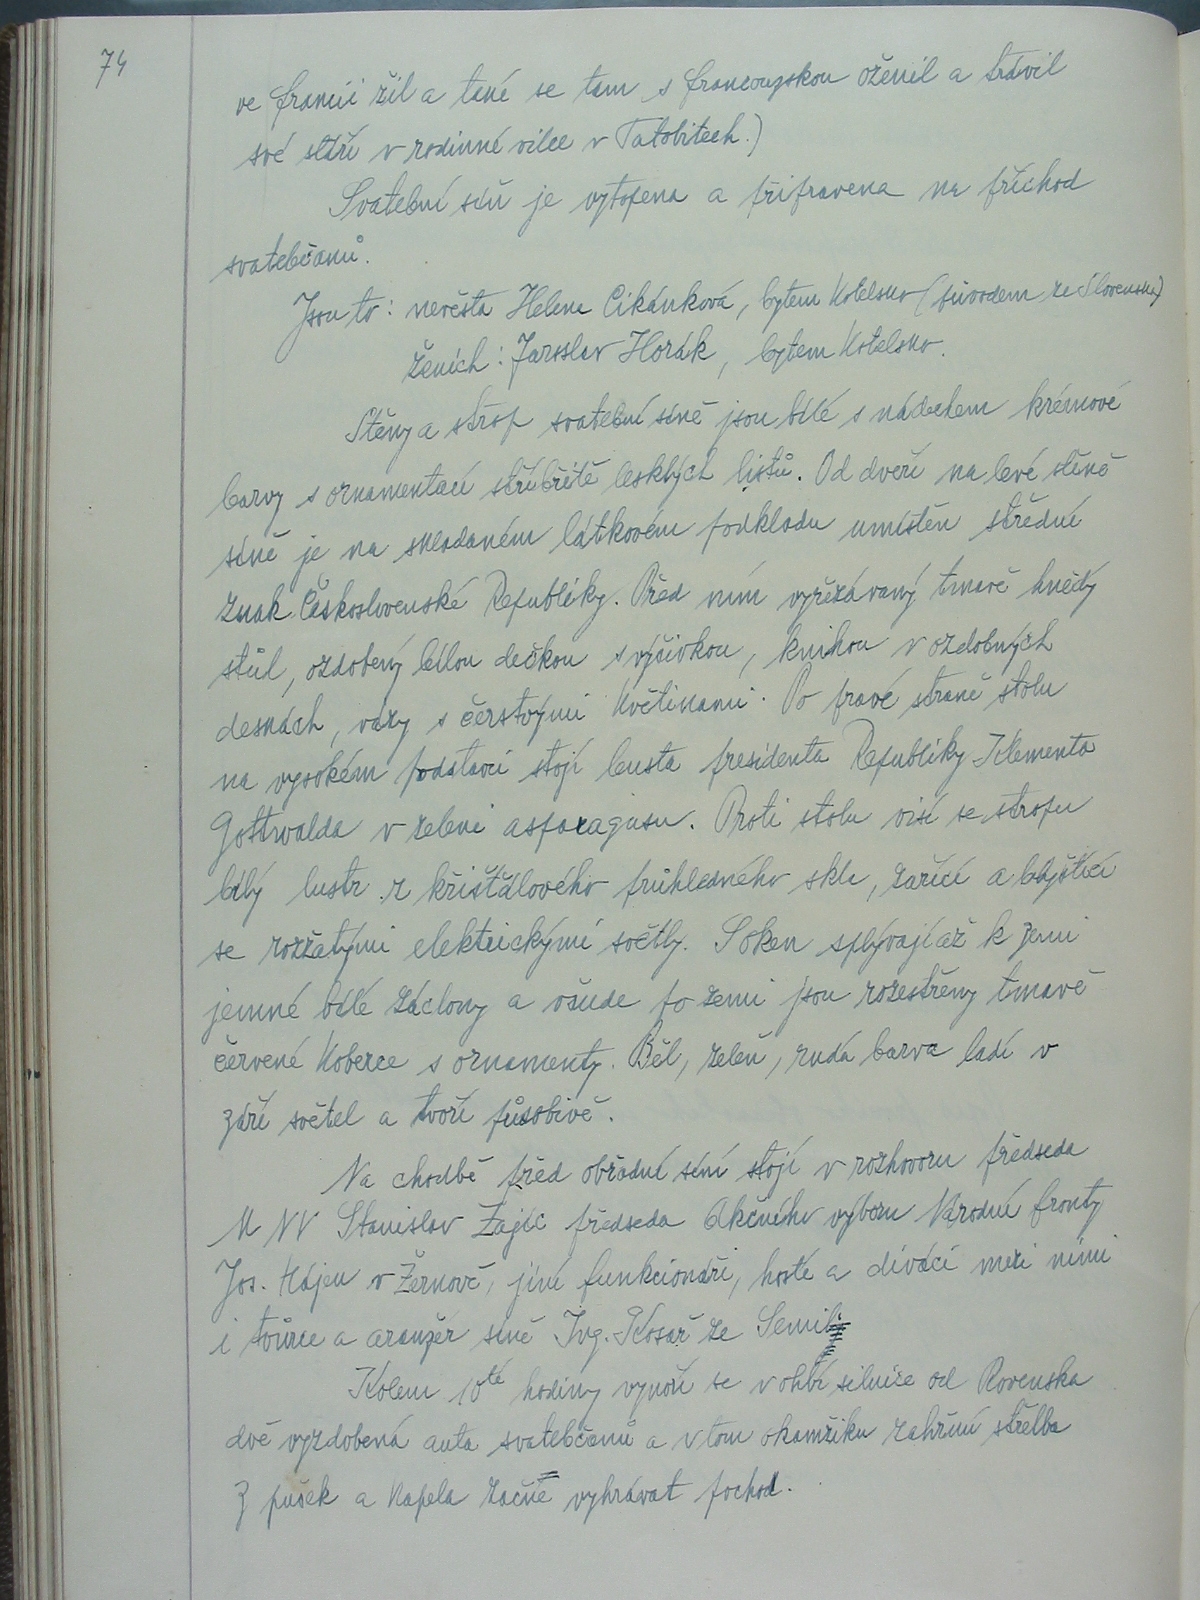 74
ve Francii žil a také se tam s francouzskou oženil a trávil
své stáří v rodinné vilce v Tatobitech.)
Svatební síň je vytopena a připravena na příchod
svatebčanů.
Jsou to: nevěsta Helena Cikánková, bytem Kotelsko (původem ze Slovenska)
ženich: Jaroslav Horák, bytem Kotelsko.
Stěny a strop svatební síně jsou bílé s nádechem krémové
barvy s ornamentací stříbřitě lesklých listů. Od dveří na levé stěně
síně je na skládaném látkovém podkladu umístěn střední
znak Československé Republiky. Před ním vyřezávaný tmavě hnědý
stůl, ozdobený bílou dečkou s výšivkou, knihou v ozdobných
deskách, vázy s čerstvými květinami. Po pravé straně stolu
na vysokém podstavci stojí busta presidenta Republiky Klementa
Gottwalda v zeleni asparagusu. Proti stolu visí se stropu
bílý lustr z křišťálového průhledného skla, zářící a blyštící
se rozžatými elektrickými světly. S oken splývají až k zemi
jemné bílé záclony a všude po zemi jsou rozestřeny tmavě
červené koberce s ornamenty. Běl, zeleň, rudá barva ladí v
září světel a tvoří působivě.
Na chodbě před obřadní síní stojí v rozhovoru předseda
M NV Stanislav Zajíc předseda Akčního výboru Národní fronty
Jos. Hájek v Žernově, jiní funkcionáři, hosté a diváci mezi nimi
i tvůrce a aranžér síně Ing. Kosař ze Semil
Kolem 10té hodiny vynoří se v ohbí silnice od Rovenska
dvě vyzdobená auta svatebčanů a v tom okamžiku zahřmí střelba
z pušek a kapela začne vyhrávat pochod.